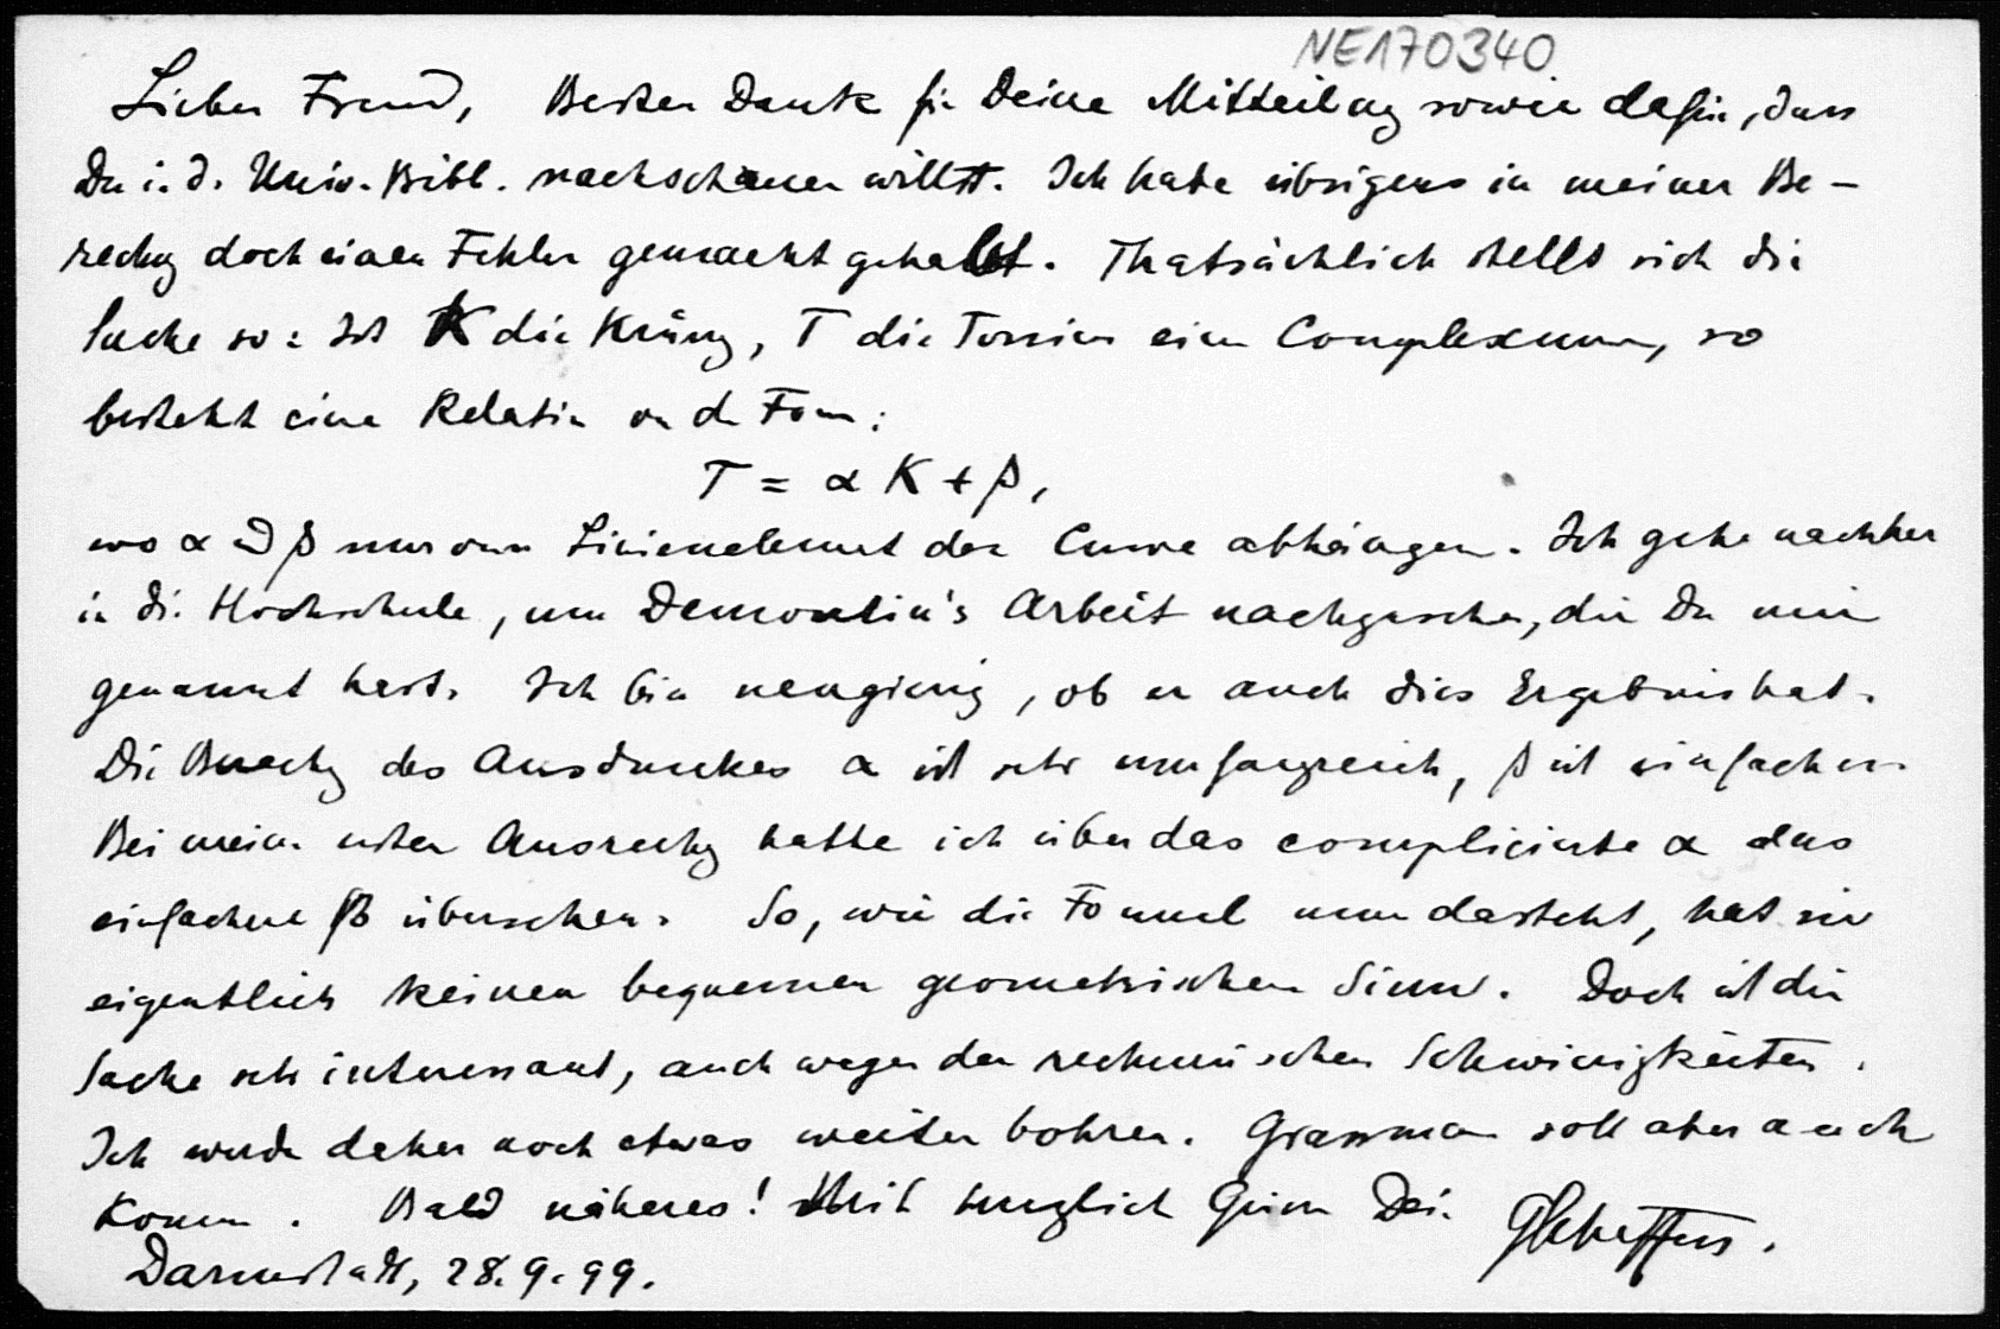 NE170340
Lieber Freund, Besten Dank für Deine Mitteilung sowie dafür, dass
Du i. d. Univ. Bibl. nachschauen willst. Ich habe übrigens in meiner Be-
rechng doch einen Fehler gemacht gehabt. Thatsächlich stellt sich die
Sache so: Ist K die Krümg, T die Torsion einer Complexcurve, so
besteht eine Relation von der Form:
T = α K + β,
wo α und β nur vom Linienelement der Curve abhängen. Ich gehe nachher
in die Hochschule, um Demoulin's Arbeit nachzusehen, die Du mir
genannt hast. Ich bin neugierig, ob er auch dies Ergebnis hat.
Die Berechng des Ausdruckes α ist sehr umfangreich, β ist einfacher.
Bei meiner ersten Ausrechng hatte ich über das complicierte α das
einfachere β übersehen. So, wie die Formel nun dasteht, hat sie
eigentlich keinen bequemen geometrischen Sinn. Doch ist die
Sache sehr interessant, auch wegen der rechnerischen Schwierigkeiten.
Ich werde daher noch etwas weiter bohren. Grassmann soll aber auch
kommen. Bald näheres! Mit herzlichen Grüssen Dein GScheffers.
Darmstadt, 28.9.99.